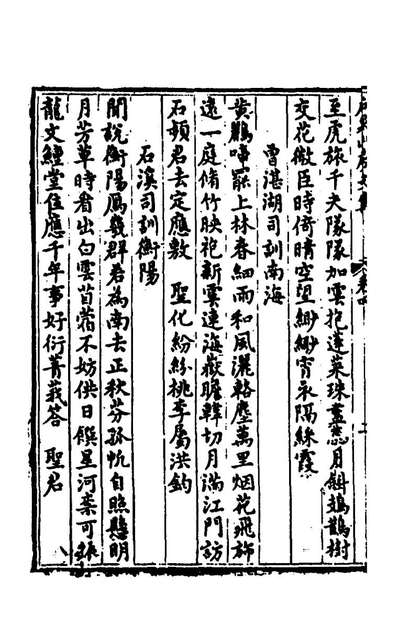 至虎旅千夫隊隊加雲抱遠萊珠畫悫月斜鳷鵲樹
交花微臣時倚晴空望緲緲霄永隔絲霞
曾湛湖司訓南海
黄鸝啼罷上林春細雨和風灑輅塵萬里烟花飛斾
遠一庭脩竹映袍新雲連海嶽瞻韓切月滿江門訪
石頻君去定應敷 聖化紛紛桃李屬洪鈞
石溪司訓衡陽
聞說衡陽鴈幾群君為南去正秋芬孤忱自照懸明
月芳草時看出白雲苜蓿不妨供日饌星河柰可振
龍文鱣堂伫應千年事好衍菁莪答 聖君